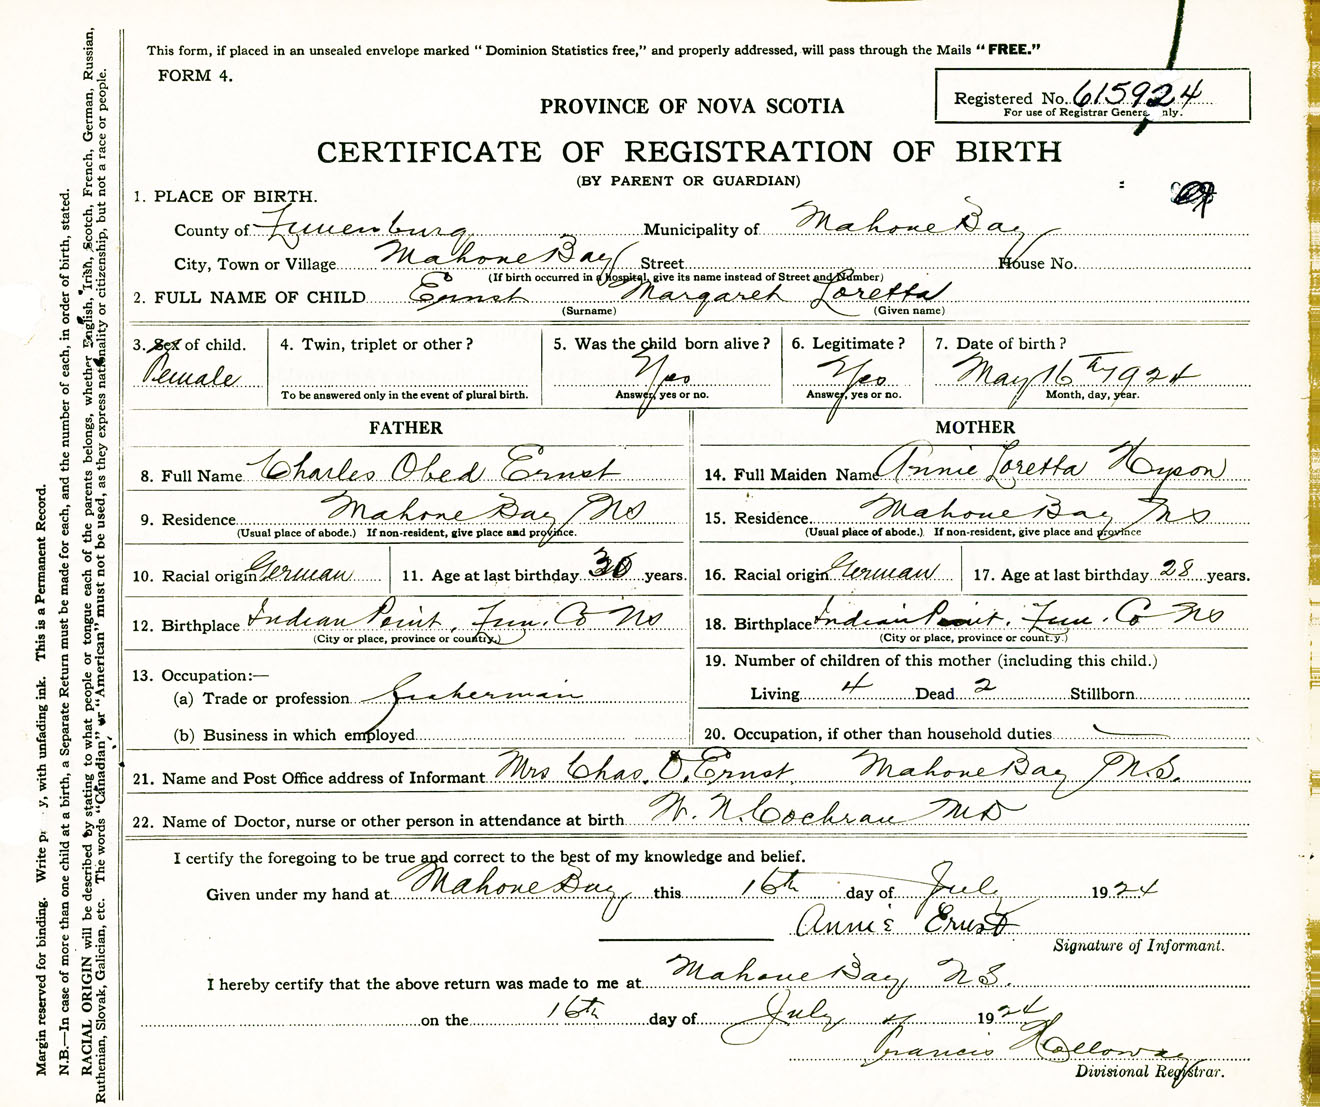 This form, if placed in an unsealed envelope marked "Dominion Statistics free," and properly addressed, will pass through the Mails "FREE."
FORM 4.
Registered No. 615924
For use of Registrar Genera nly.
PROVINCE OF NOVA SCOTIA
CERTIFICATE OF REGISTRATION OF BIRTH
(BY PARENT OR GUARDIAN)
1. PLACE OF BIRTH.
County of Lunenburg Municipality of Mahone Bay
City, Town or Village Mahone Bay Street House No.
(If birth occurred in a hospital, give its name instead of Street and Number)
2. FULL NAME OF CHILD Ernst Margaret Loretta
(Surname) (Given name)
3. Sex of child. 4. Twin, triplet or other? 5. Was the child born alive? 6. Legitimate? 7. Date of birth?
Female Yes Yes May 16th 1924
To be answered only in the event of plural birth. Answer, yes or no. Answer, yes or no. Month, day, year.
FATHER MOTHER
8. Full Name Charles Obed Ernst 14. Full Maiden Name Annie Loretta Hyson
9. Residence Mahone Bay NS 15. Residence Mahone Bay NS
(Usual place of abode.) If non-resident, give place and province. (Usual place of abode.) If non-resident, give place and province
10. Racial origin German 11. Age at last birthday 36 years. 16. Racial origin German 17. Age at last birthday 28 years.
12. Birthplace Indian Point, Lun. Co NS 18. Birthplace Indian Point, Lun. Co NS
(City or place, province or country.) (City or place, province or count.y.)
13. Occupation:— 19. Number of children of this mother (including this child.)
(a) Trade or profession fisherman Living 4 Dead 2 Stillborn
(b) Business in which employed 20. Occupation, if other than household duties
21. Name and Post Office address of Informant Mrs Chas. O. Ernst Mahone Bay N.S.
22. Name of Doctor, nurse or other person in attendance at birth W. N. Cochran MD
I certify the foregoing to be true and correct to the best of my knowledge and belief.
Given under my hand at Mahone Bay this 16th day of July 1924
Annie Ernst
Signature of Informant.
I hereby certify that the above return was made to me at Mahone Bay N.S.
on the 16th day of July 1924
Francis Holloway
Divisional Registrar.
Margin reserved for binding. Write p y, with unfading ink. This is a Permanent Record.
N.B.—In case of more than one child at a birth, a Separate Return must be made for each, and the number of each, in order of birth, stated.
RACIAL ORIGIN will be described by stating to what people or tongue each of the parents belongs, whether English, Irish, Scotch, French, German, Russian,
Ruthenian, Slovak, Galician, etc. The words "Canadian" or "American" must not be used, as they express nationality or citizenship, but not a race or people.